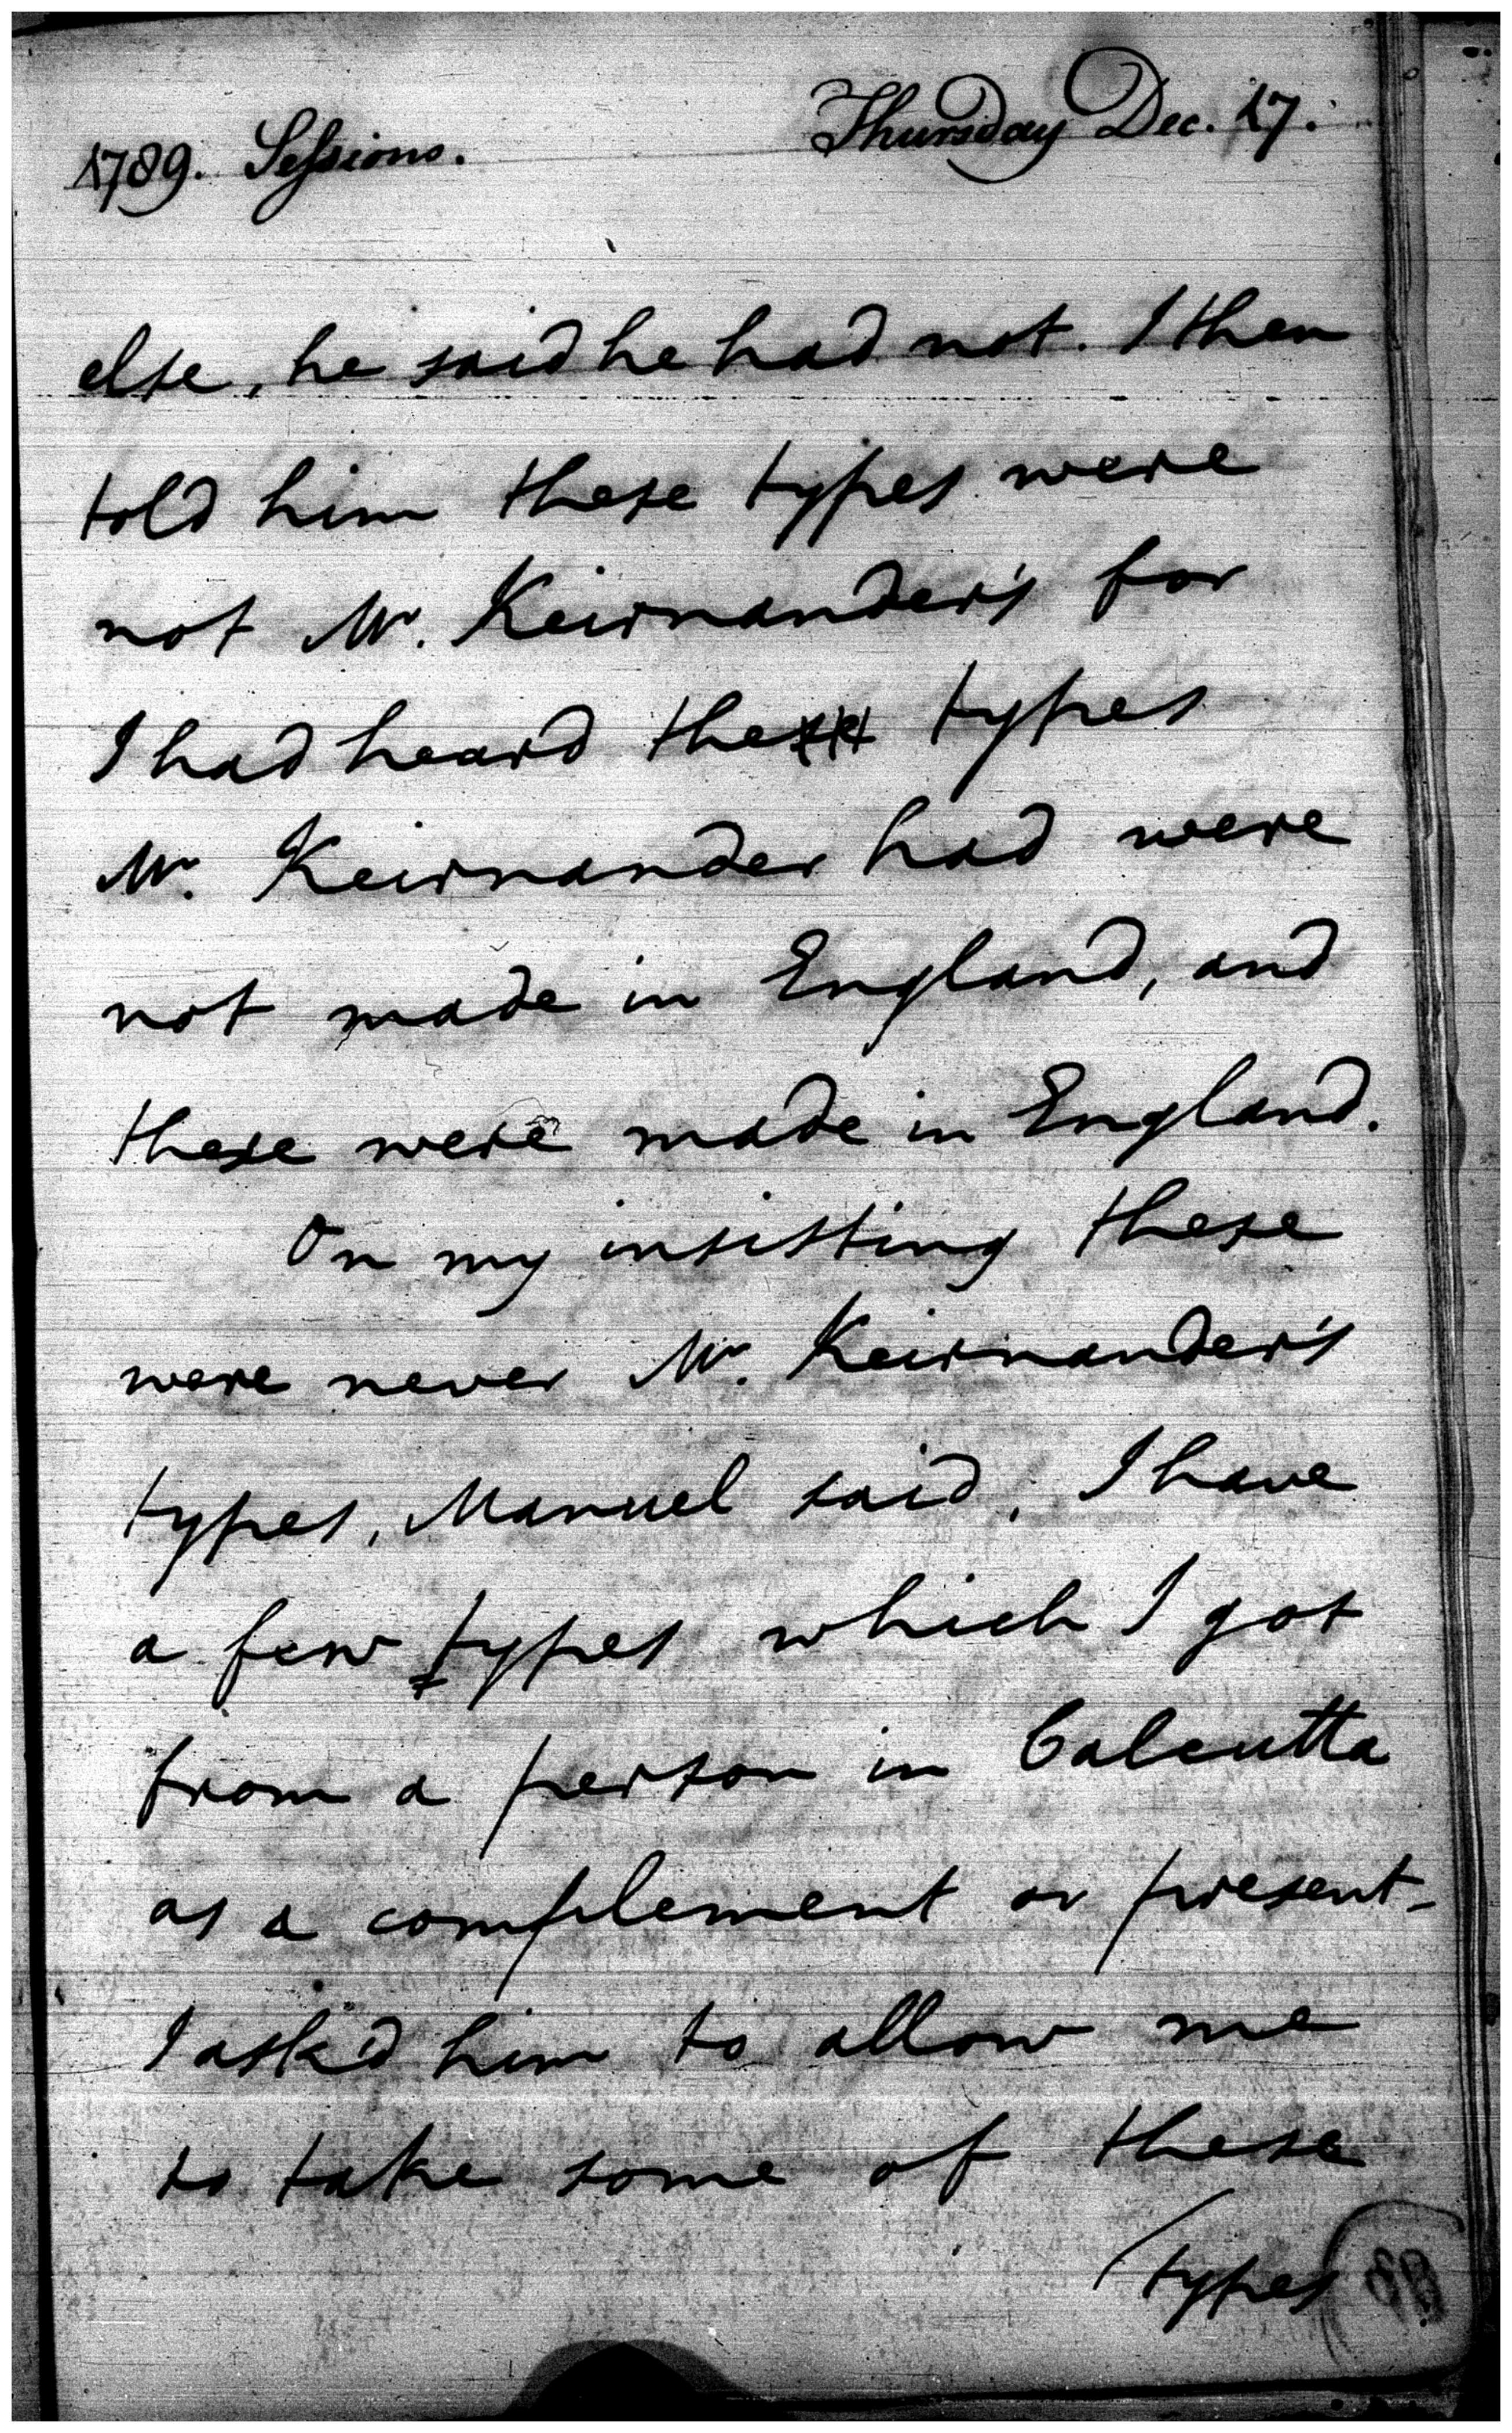 1789. Sessions. Thursday Dec. 17.
else, he said he had not. I then
told him these types were
not Mr. Keirnander's for
I had heard the types
Mr. Keirnander had were
not made in England, and
these were made in England.
On my insisting these
were never Mr. Keirnander's
types, Manuel said, I have
a few types which I got
from a person in Calcutta
as a complement or present-
I ask'd him to allow me
to take some of these
(types